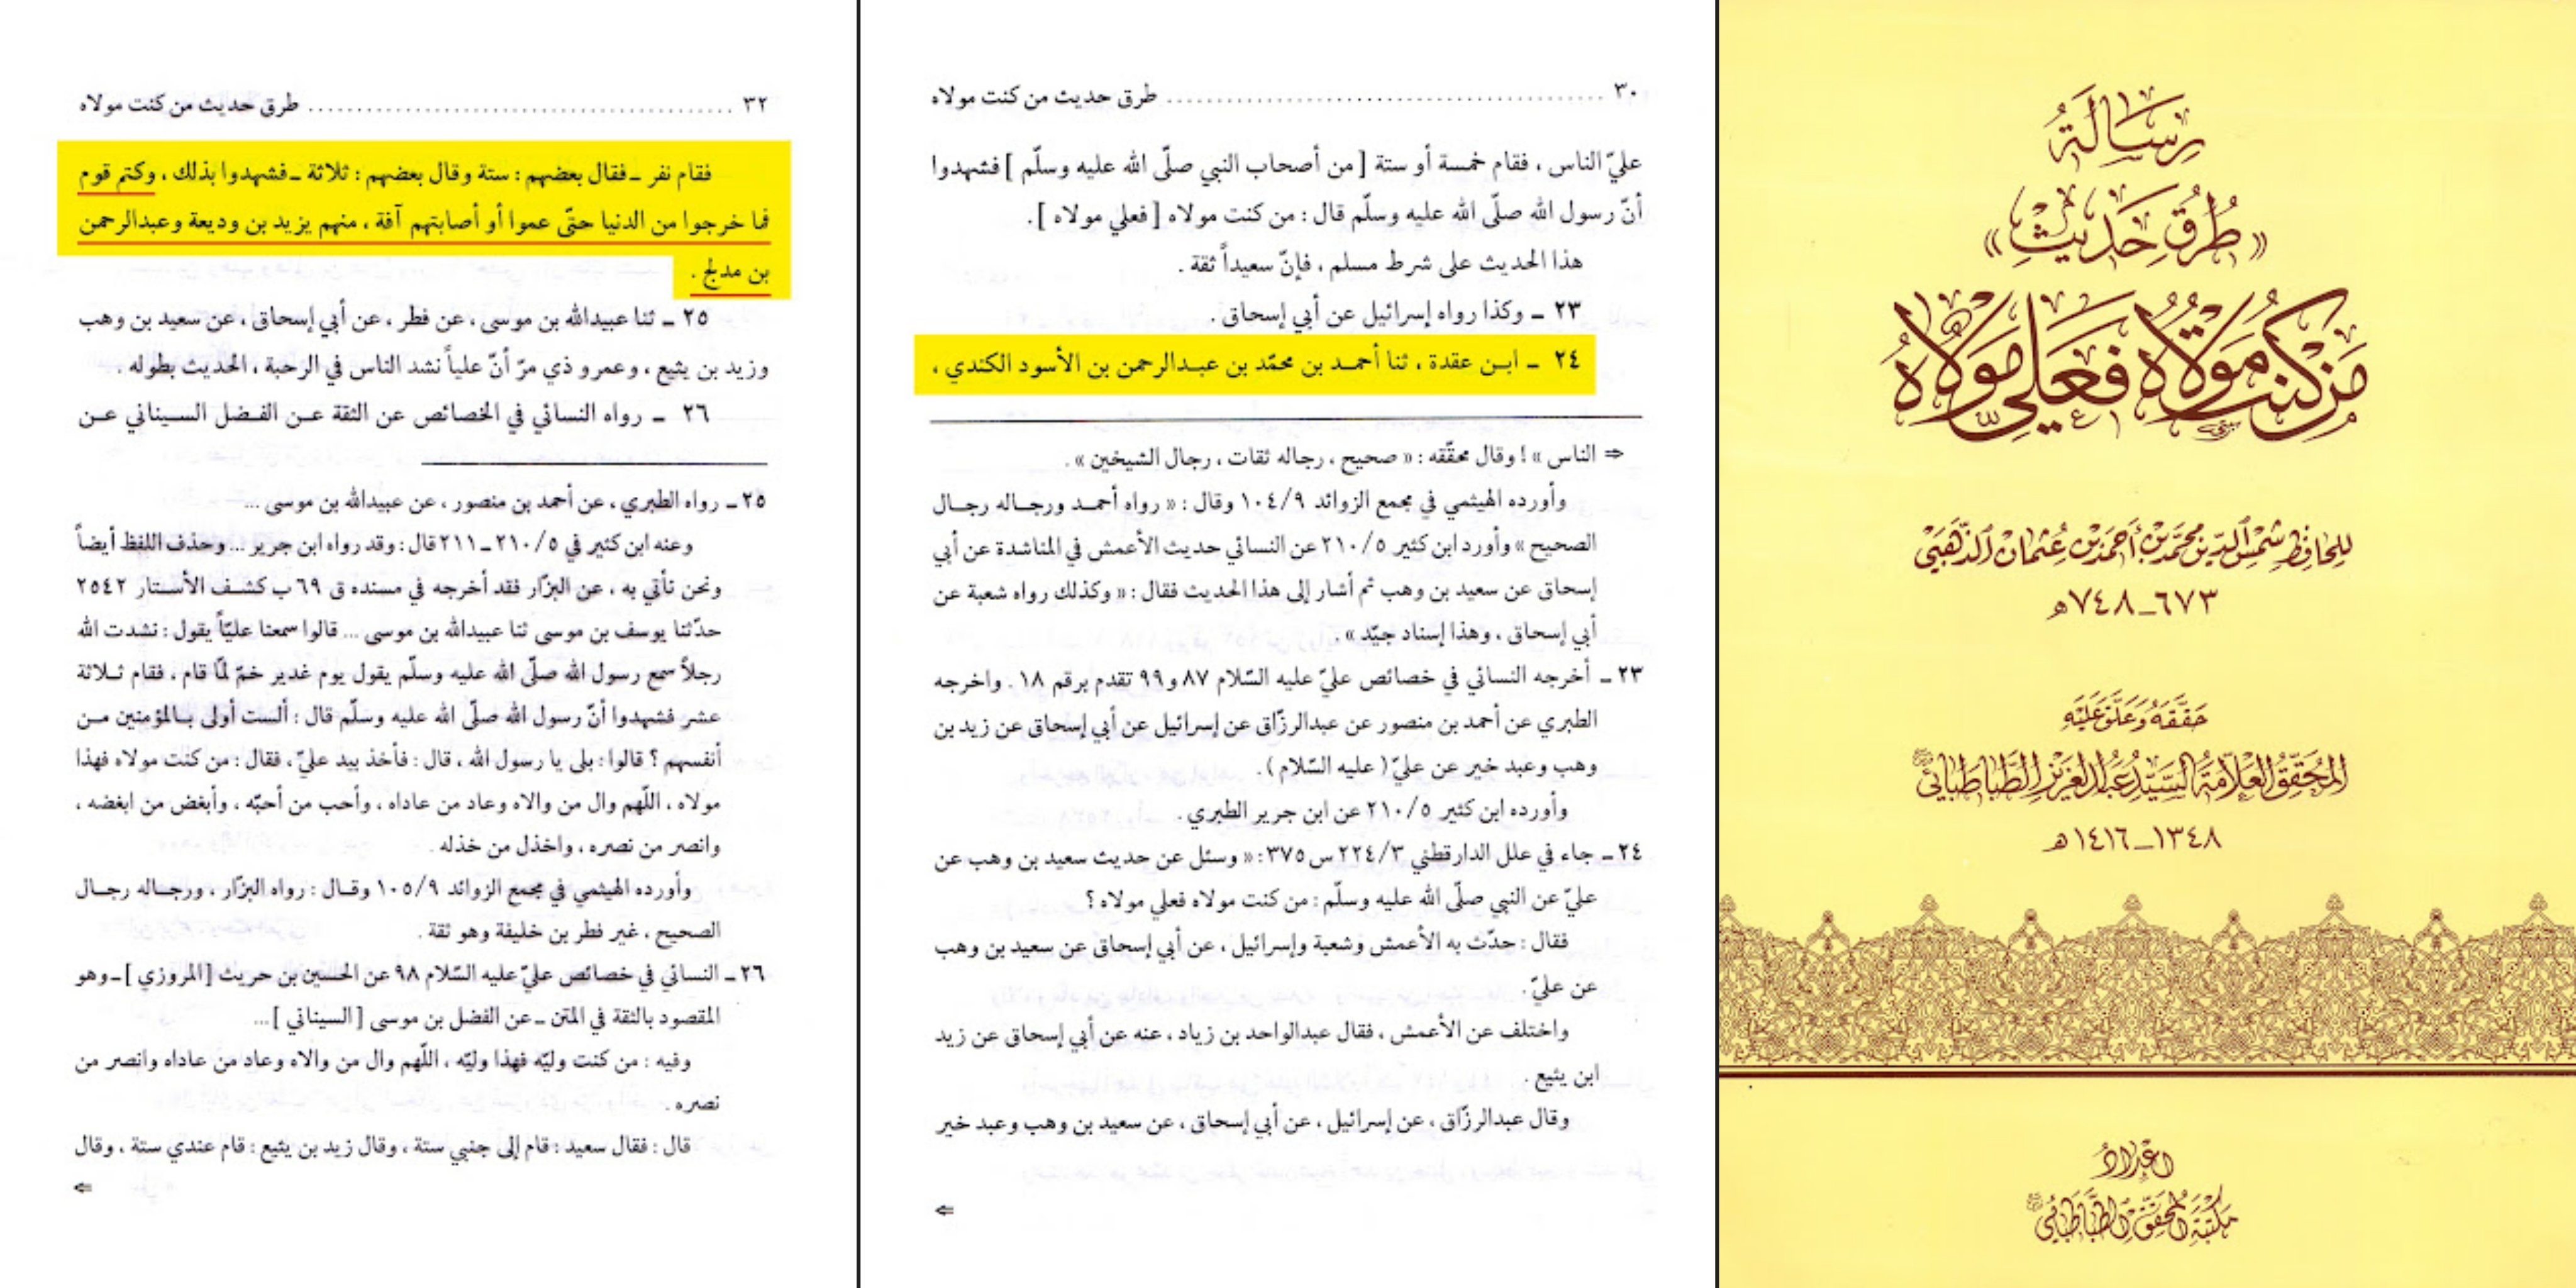 رسالة
«طرق حديث»
من كنت مولاه فعلي مولاه
للحافظ شمس الدين محمد بن أحمد بن عثمان الذهبي
٦٧٣_٧٤٨ه
حققه وعلق عليه
المحقق العلامة السيد عبد العزيز الطباطبائي
١٣٤٨_١٤١٦ ه
اعداد
مكتبة المحقق الطباطبائي
٣٠ ........ طرق حديث من كنت مولاه
عليّ الناس ، فقام خمسة أو ستة [ من أصحاب النبي صلّى الله عليه وسلّم ] فشهدوا
أنّ رسول الله صلّى الله عليه وسلّم قال : من كنت مولاه [ فعلي مولاه ] .
هذا الحديث على شرط مسلم ، فإنّ سعيداً ثقة .
٢٣ ـ وكذا رواه إسرائيل عن أبي إسحاق .
٢٤ ـ ابن عقدة ، ثنا أحمد بن محمّد بن عبدالرحمن بن الأسود الكندي ،
⇐ الناس » ! وقال محقّقه : « صحيح ، رجاله ثقات ، رجال الشيخين » .
وأورده الهيثمي في مجمع الزوائد ١٠٤/٩ وقال : « رواه أحمد ورجاله رجال
الصحيح » وأورد ابن كثير ٢١٠/٥ عن النسائي حديث الأعمش في المناشدة عن أبي
إسحاق عن سعيد بن وهب ثم أشار إلى هذا الحديث فقال : « وكذلك رواه شعبة عن
أبي إسحاق ، وهذا إسناد جيّد » .
٢٣ ـ أخرجه النسائي في خصائص عليّ عليه السّلام ٨٧ و ٩٩ تقدم برقم ١٨ . واخرجه
الطبري عن أحمد بن منصور عن عبدالرزّاق عن إسرائيل عن أبي إسحاق عن زيد بن
وهب وعبد خير عن عليّ ( عليه السّلام ) .
وأورده ابن كثير ٢١٠/٥ عن ابن جرير الطبري .
٢٤ ـ جاء في علل الدارقطني ٢٢٤/٣ س ٣٧٥ : « وسئل عن حديث سعيد بن وهب عن
عليّ عن النبي صلّى الله عليه وسلّم : من كنت مولاه فعلي مولاه ؟
فقال : حدّث به الأعمش وشعبة وإسرائيل ، عن أبي إسحاق عن سعيد بن وهب
عن عليّ .
واختلف عن الأعمش ، فقال عبدالواحد بن زياد ، عنه عن أبي إسحاق عن زيد
ابن يثيع .
وقال عبدالرزّاق ، عن إسرائيل ، عن أبي إسحاق ، عن سعيد بن وهب وعبد خير
⇐
٣٢ ........ طرق حديث من كنت مولاه
فقام نفر ـ فقال بعضهم : ستة وقال بعضهم : ثلاثة ـ فشهدوا بذلك ، وكتم قوم
فما خرجوا من الدنيا حتّى عموا أو أصابتهم آفة ، منهم يزيد بن وديعة وعبدالرحمن
بن مدلج .
٢٥ ـ ثنا عبيدالله بن موسى ، عن فطر ، عن أبي إسحاق ، عن سعيد بن وهب
وزيد بن يثيع ، وعمرو ذي مرّ أنّ علياً نشد الناس في الرحبة ، الحديث بطوله .
٢٦ ـ رواه النسائي في الخصائص عن الثقة عن الفضل السيناني عن
٢٥ ـ رواه الطبري ، عن أحمد بن منصور ، عن عبيدالله بن موسى ...
وعنه ابن كثير في ٢١٠/٥ ـ ٢١١ قال : وقد رواه ابن جرير ... وحذف اللفظ أيضاً
ونحن نأتي به ، عن البزّار فقد أخرجه في مسنده ق ٦٩ ب كشف الأستار ٢٥٤٢
حدّثنا يوسف بن موسى ثنا عبيدالله بن موسى ... قالوا سمعنا عليّاً يقول : نشدت الله
رجلاً سمع رسول الله صلّى الله عليه وسلّم يقول يوم غدير خمّ لمّا قام ، فقام ثلاثة
عشر فشهدوا أنّ رسول الله صلّى الله عليه وسلّم قال : ألست أولى بالمؤمنين من
أنفسهم ؟ قالوا : بلى يا رسول الله ، قال : فأخذ بيد عليّ ، فقال : من كنت مولاه فهذا
مولاه ، اللّهم وال من والاه وعاد من عاداه ، وأحب من أحبّه ، وأبغض من ابغضه ،
وانصر من نصره ، واخذل من خذله .
وأورده الهيثمي في مجمع الزوائد ١٠٥/٩ وقال : رواه البزّار ، ورجاله رجال
الصحيح ، غير فطر بن خليفة وهو ثقة .
٢٦ ـ النسائي في خصائص عليّ عليه السّلام ٩٨ عن الحسين بن حريث [ المروزي ] ـ وهو
المقصود بالثقة في المتن ـ عن الفضل بن موسى [ السيناني ] ...
وفيه : من كنت وليّه فهذا وليّه ، اللّهم وال من والاه وعاد من عاداه وانصر من
نصره .
قال : فقال سعيد : قام إلى جنبي ستة ، وقال زيد بن يثيع : قام عندي ستة ، وقال
⇐